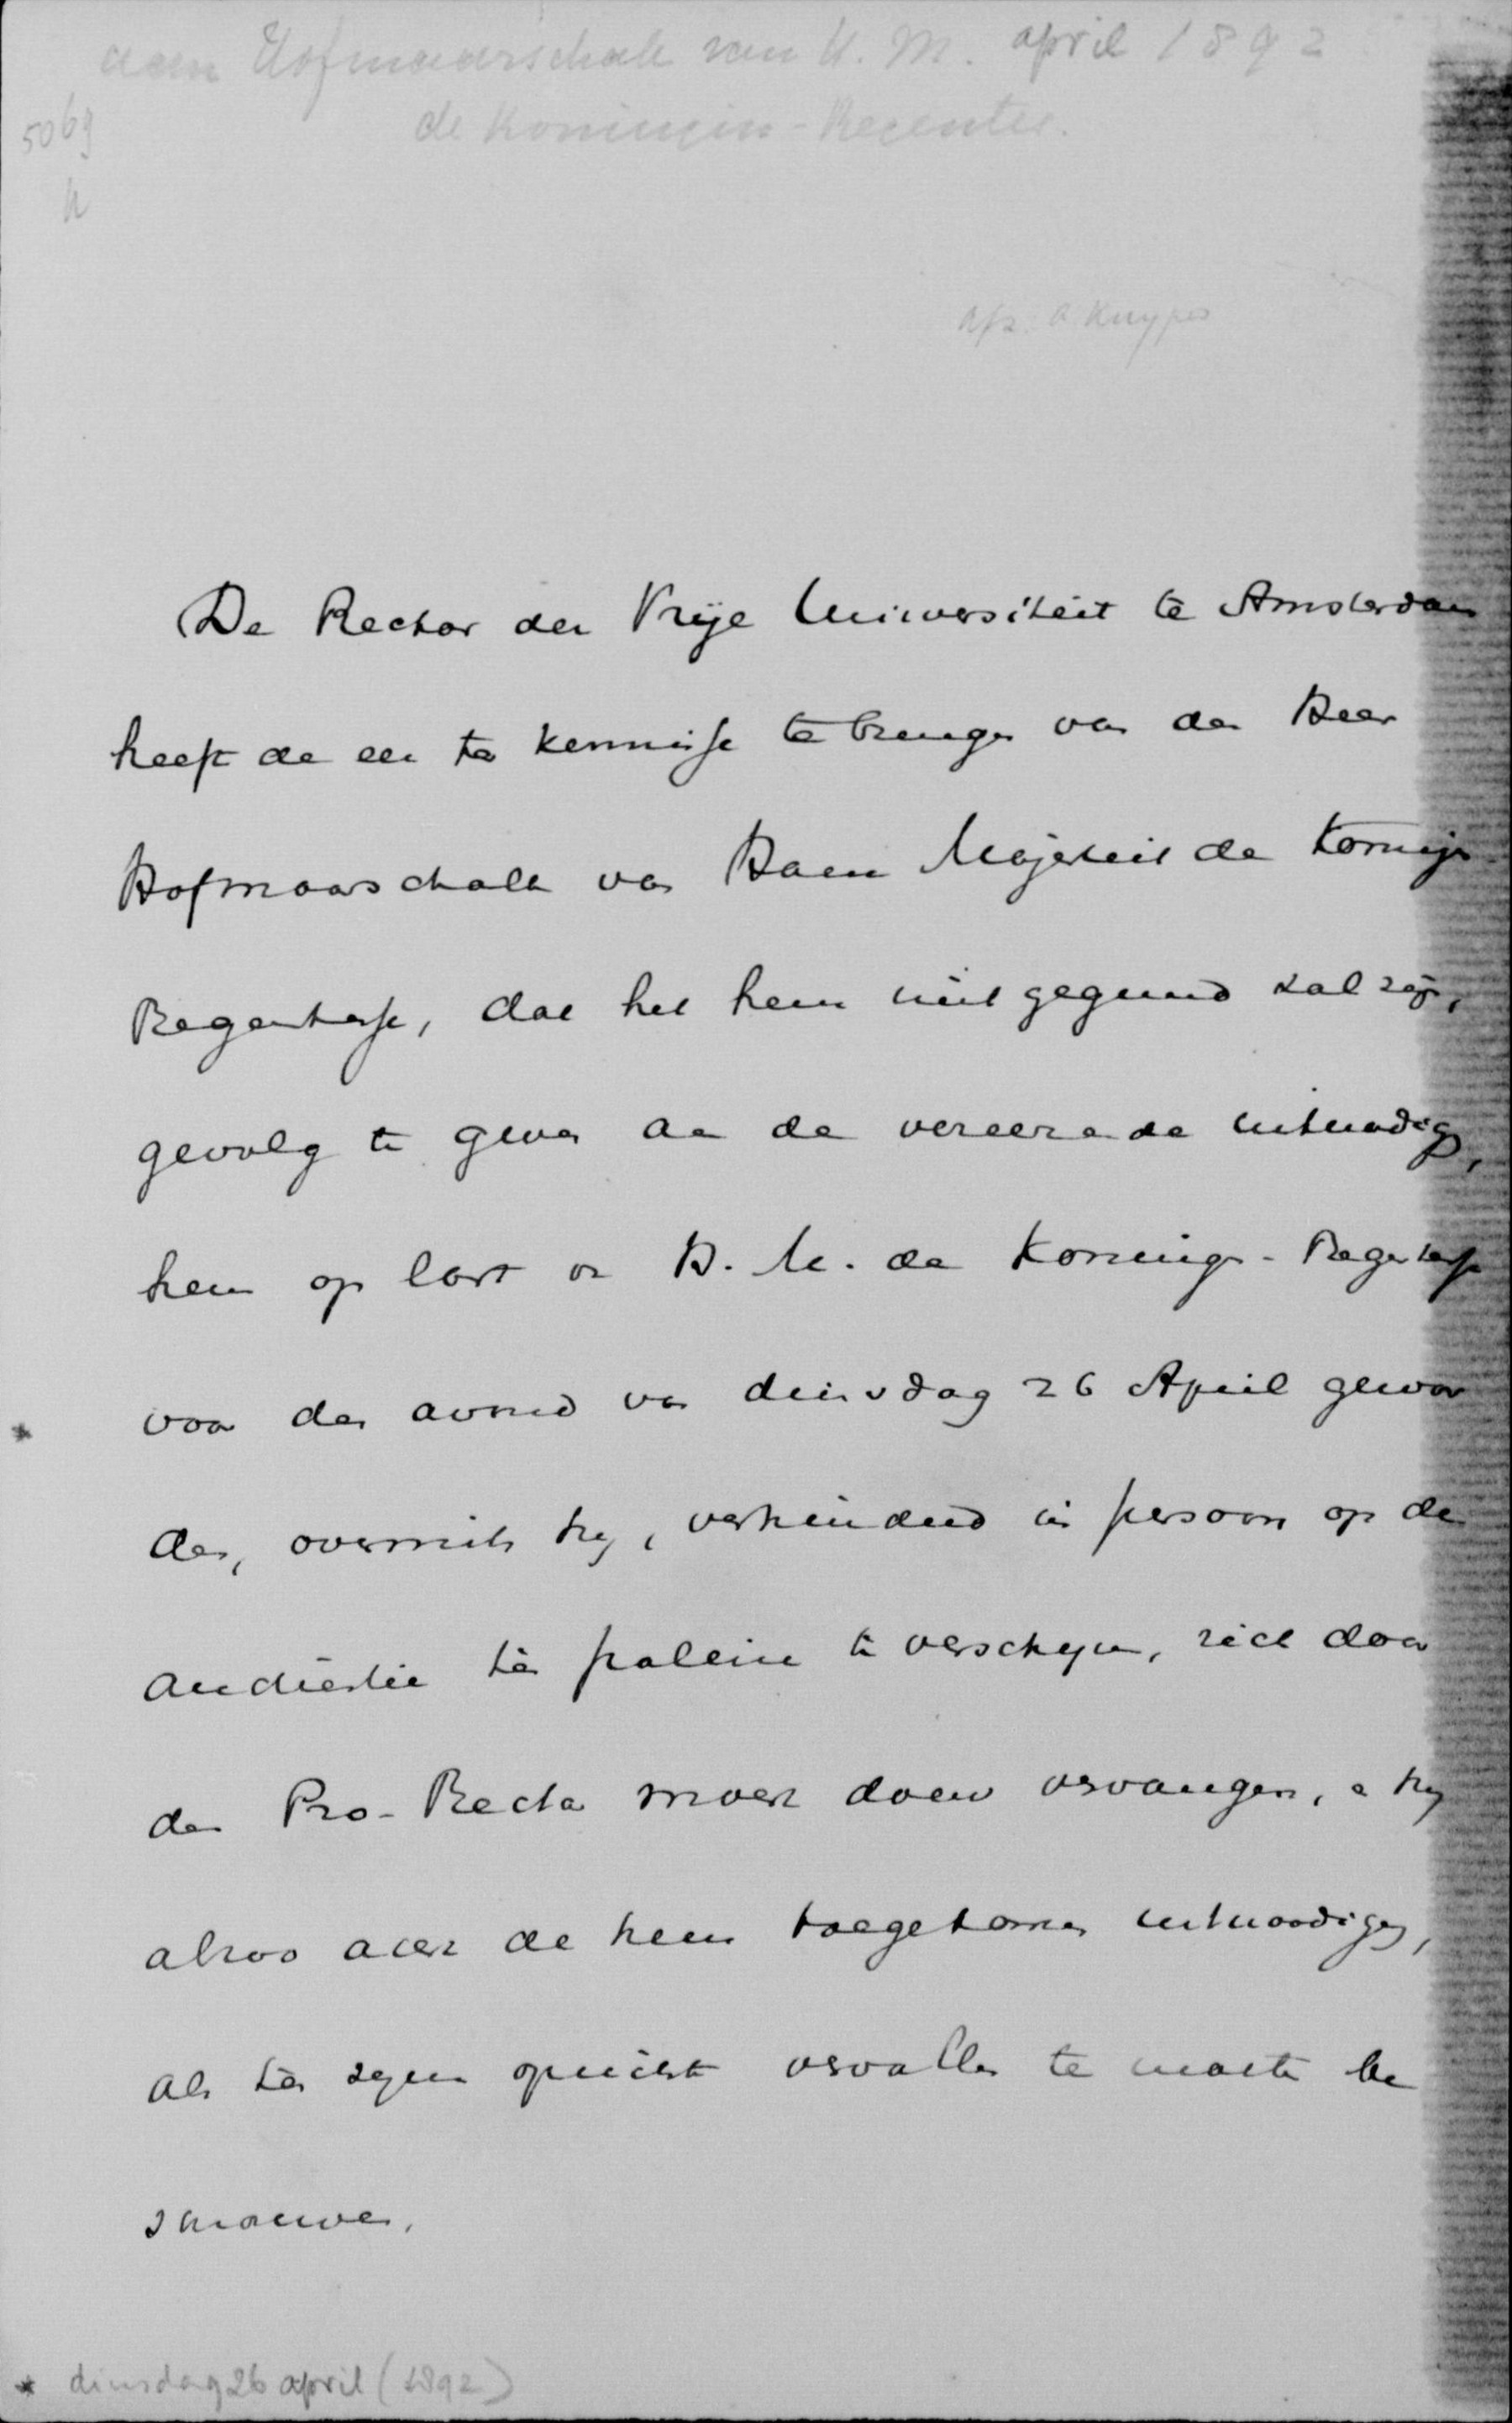 aan Hofmaarschalk van H. M. april 1892
de Koningin-Regentes.
5069
h
Afz. A Kuyper
De Rector der Vrije Universiteit te Amsterdam
heeft de eer ter kennisse te brengen van den Heer
Hofmaarschalk van Haar Majesteit de Koningin
Regentesse, dat het hem niet gegund zal zijn,
gevolg te geven aan de vereerende uitnoodiging,
hem op last van H. M. de Koningin-Regentesse
voor den avond van dinsdag 26 April gewor
den, overmits hij, verhinderd in persoon op de
audientie ten paleize te verschijnen, zich door
den Pro-Rector moest doen vervangen, en hij
alzoo acht de hem toegekomen uitnoodiging,
als ten zijnen opzichte vervallen te moeten be
schouwen.
* dinsdag 26 april (1892)